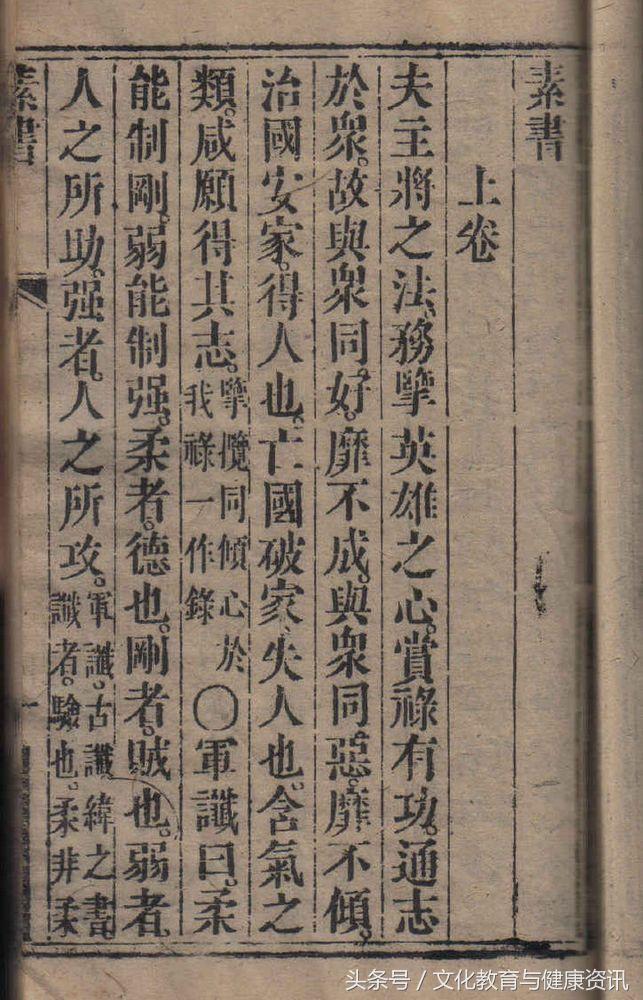 素書
上卷
夫主將之法。務擥英雄之心。賞祿有功。通志
於衆。故與衆同好。靡不成。與衆同惡。靡不傾。
治國安家。得人也。亡國破家、失人也。含氣之
類。咸願得其志。擥攬同傾心於我祿一作錄〇軍讖曰。柔
能制剛。弱能制强。柔者。德也。剛者。賊也。弱者。
人之所助。强者。人之所攻。軍讖。古讖緯之書。讖者。驗也。柔非柔
素書
头条号 / 文化教育与健康资讯